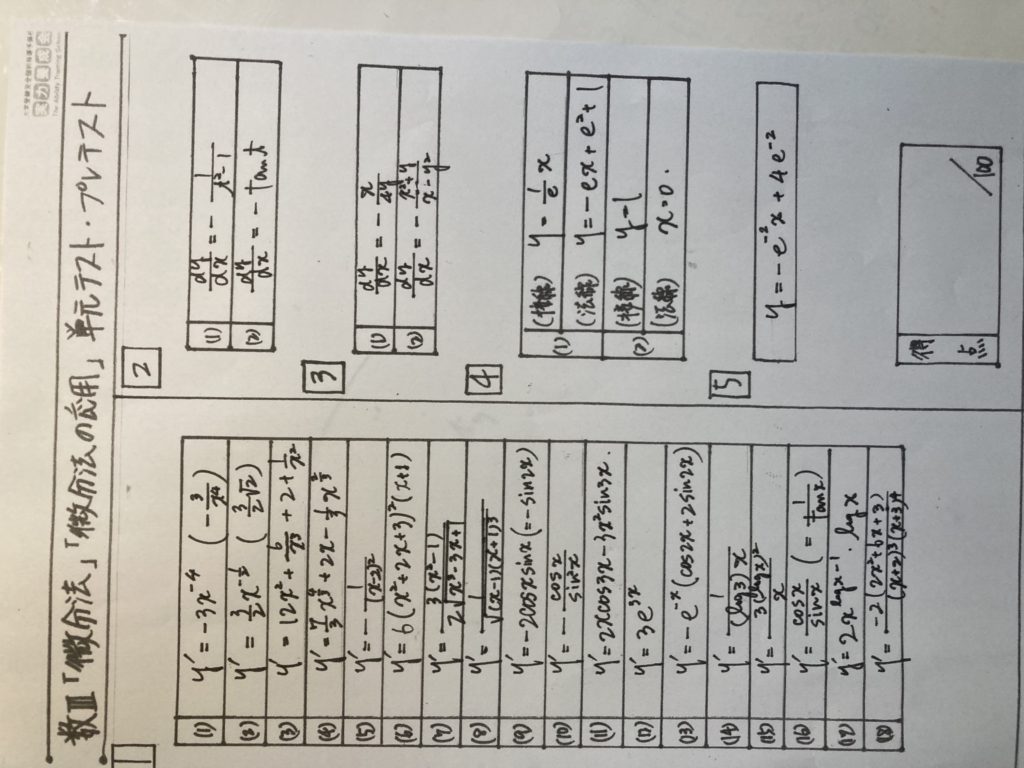 実力養成会
The Ability Training School
数Ⅲ「微分法」「微分法の応用」単元テスト・プレテスト
1
(1) y' = -3x^{-4} (-3/x^4)
(2) y' = 3/2 x^{1/2} (3/2 √x)
(3) y' = 12x^2 + 6/x^3 + 2 + 1/x^2
(4)
(5) y' = - 1/(x-2)^2
(6) y' = 6(x^2+2x+3)^2(x+1)
(7) y' = 3(x^2-1)/2√(x^3-3x+1)
(8) y' = 1/√((x-1)(x+1)^3)
(9) y' = -2cosx sinx (= -sin2x)
(10) y' = - cosx/sin^2x
(11) y' = 2x cos3x - 3x^2 sin3x.
(12) y' = 3e^{3x}
(13) y' = -e^{-x}(cos2x + 2sin2x)
(14) y' = 1/(log3)x
(15) y' = 3(logx)^2/x
(16) y' = cosx/sinx (= 1/tanx)
(17) y' = 2x^{logx-1}・logx
(18) y' = -2(2x^2+6x+3)/(x+2)^3(x+3)^4
2
(1) dy/dx = - 1/(t^2-1)
(2) dy/dx = -tant
3
(1) dy/dx = - x/2y
(2) dy/dx = - (x^2+y)/(x-y^2)
4
(1) (接線) y = 1/e x
(法線) y = -ex + e^2 + 1
(2) (接線) y = 1
(法線) x = 0.
5
y = -e^{-2}x + 4e^{-2}
得点
/100